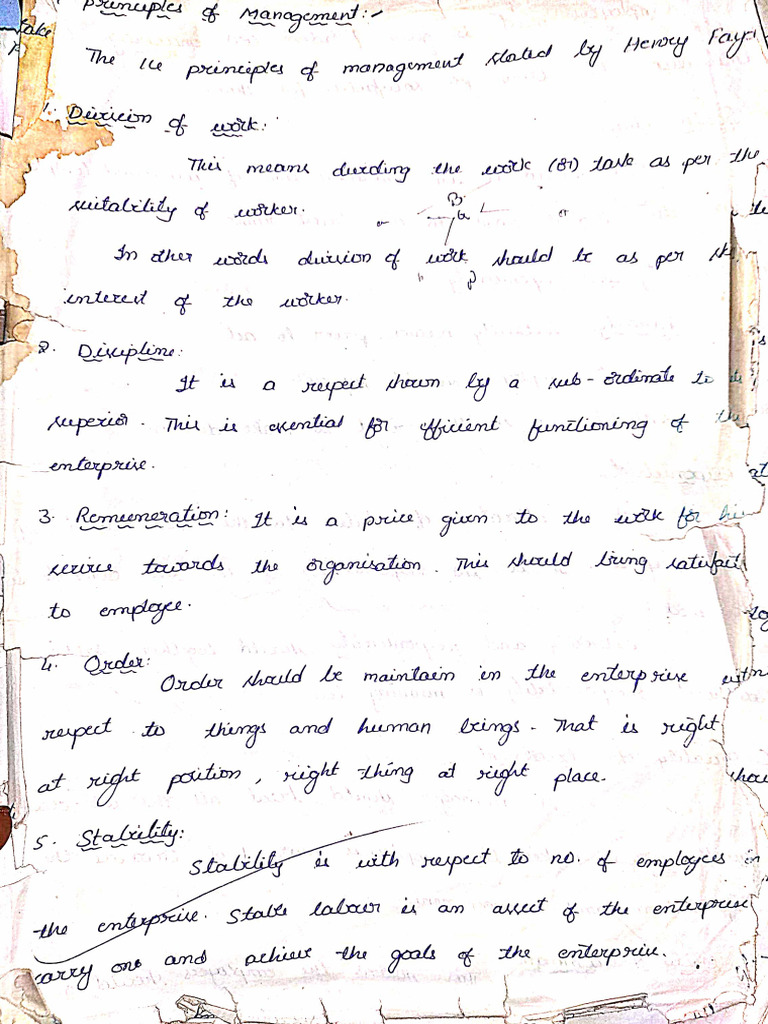 Principles of Management:-
The 14 principles of management stated by Henry Fayo
1. Division of work:
This means dividing the work (or) task as per the
suitability of worker.
In other words division of work should be as per the
interest of the worker.
2. Discipline:
It is a respect shown by a sub-ordinate to the
superior. This is essential for efficient functioning of the
enterprise.
3. Remuneration: It is a price given to the work for his
service towards the organisation. This should bring satisfact
to employee.
4. Order:
Order should be maintain in the enterprise with
respect to things and human beings. That is right
at right position, right thing at right place.
5. Stability:
Stability is with respect to no. of employees in
the enterprise. Stable labour is an asset of the enterprise
carry one and achieve the goals of the enterprise.